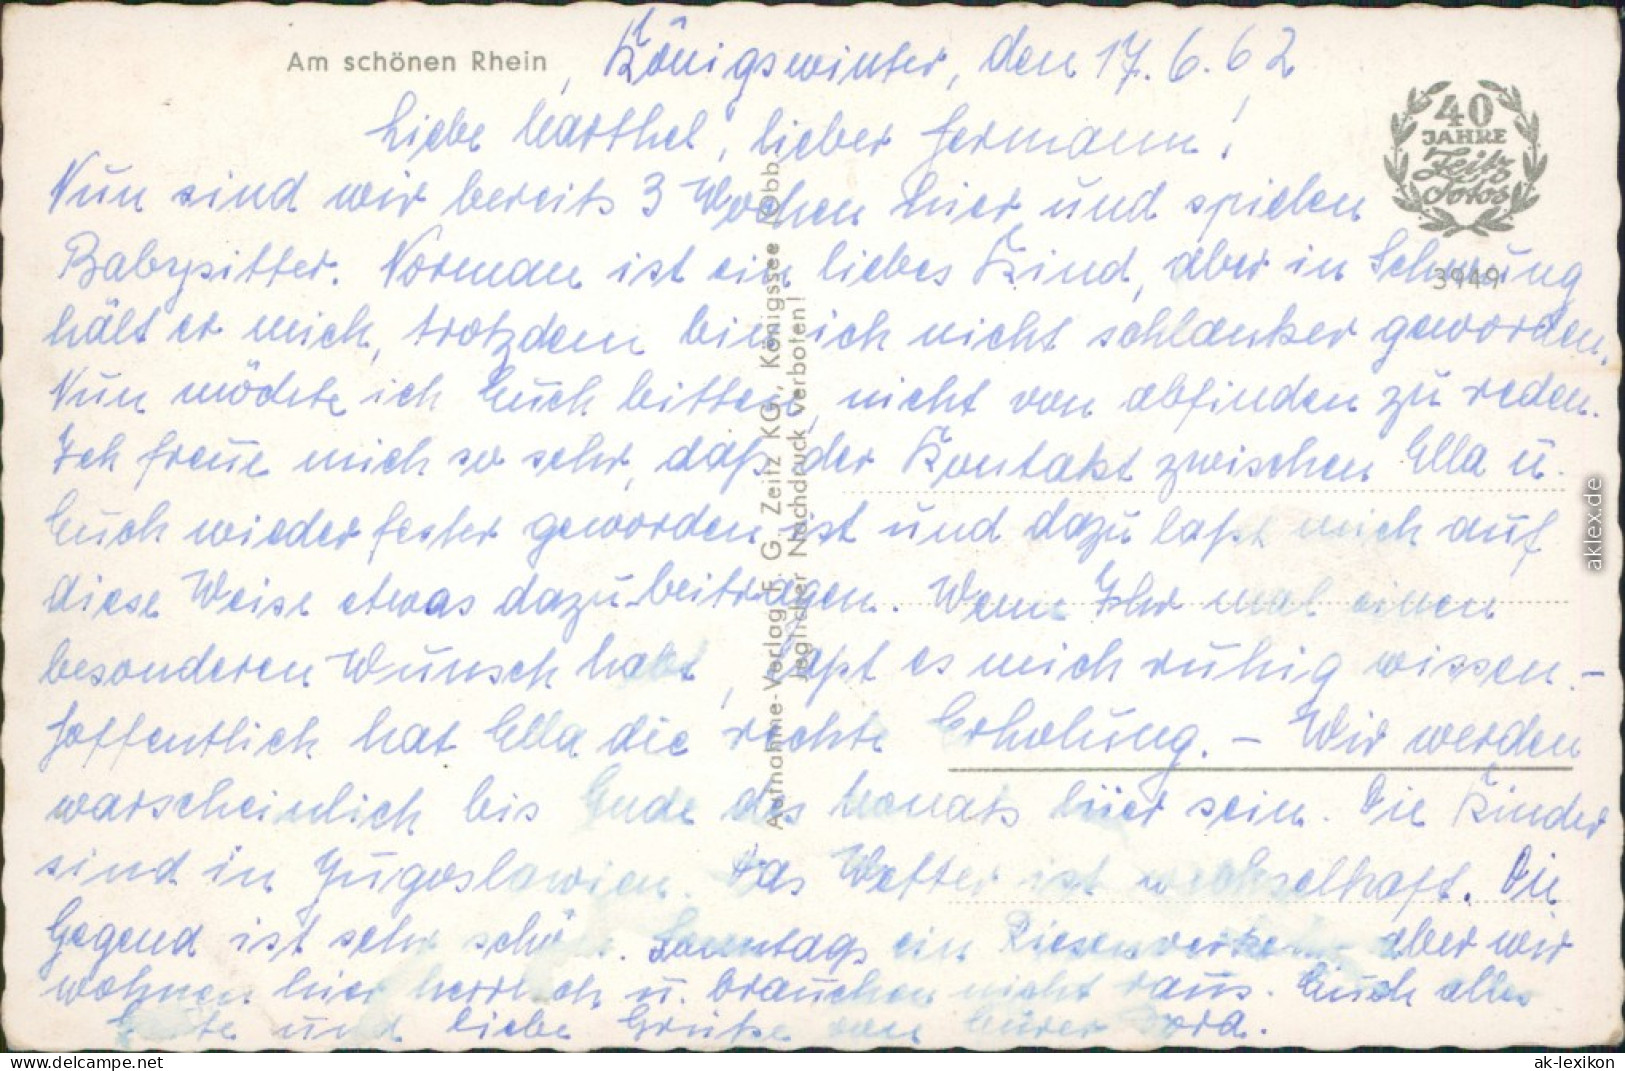 Am schönen Rhein
Königswinter, den 17.6.62
40
JAHRE
Zeitz
Fotos
3949
Liebe Marthel, lieber Hermann!
Nun sind wir bereits 3 Wochen hier und spielen
Babysitter. Norman ist ein liebes Kind, aber in Schwung
hält er mich, trotzdem bin ich nicht schlanker geworden.
Nun möchte ich Euch bitten, nicht von abfinden zu reden.
Ich freue mich so sehr, daß der Kontakt zwischen Ella u.
Euch wieder fester geworden ist und dazu laßt mich auf
diese Weise etwas dazu beitragen. Wenn Ihr mal einen
besonderen Wunsch habt, laßt es mich ruhig wissen. –
Hoffentlich hat Ella die rechte Erholung. – Wir werden
warscheinlich bis Ende des Monats hier sein. Die Kinder
sind in Jugoslawien. Das Wetter ist wechselhaft. Die
Gegend ist sehr schön. Sonntags ein Riesenverkehr aber wir
wohnen hier herrlich u. brauchen nicht raus. Euch alles
Gute und liebe Grüße von Eurer Dora.
Aufnahme-Verlag F. G. Zeitz KG, Königssee /Obb.
Jeglicher Nachdruck verboten!
aklex.de
www.delcampe.net
ak-lexikon